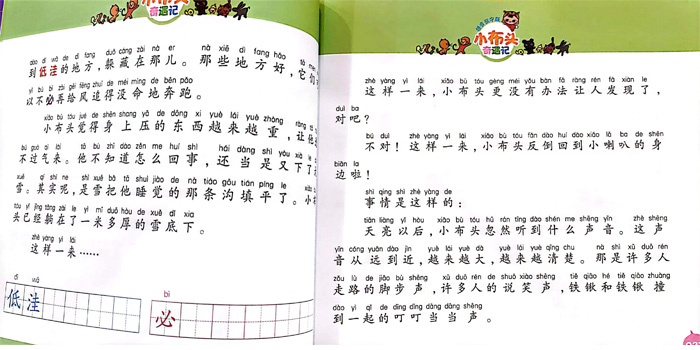 小布头
奇遇记
dào dī wā de dì fang duǒ cáng zài nà er nà xiē dì fang hǎo
到低洼的地方，躲藏在那儿。那些地方好，它们
yǐ bú bì zài gěi fēng zhuī de méi mìng de bēn pǎo
以不必再给风追得没命地奔跑。
xiǎo bù tóu jué de shēn shang yā de dōng xi yuè lái yuè zhòng
小布头觉得身上压的东西越来越重，让他
bú guò qì lái tā bù zhī dào zěn me huí shì hái dāng shì yòu xià le
不过气来。他不知道怎么回事，还当是又下了
xuě qí shí ne shì xuě bǎ tā shuì jiào de nà tiáo gōu tián píng le
雪。其实呢，是雪把他睡觉的那条沟填平了。小
tóu yǐ jīng tǎng zài le yì mǐ duō hòu de xuě dǐ xia
头已经躺在了一米多厚的雪底下。
zhè yàng yì lái
这样一来……
dī wā
低洼
bì
必
小布头
奇遇记
zhè yàng yì lái xiǎo bù tóu gèng méi yǒu bàn fǎ ràng rén fā xiàn le
这样一来，小布头更没有办法让人发现了，
duì ba
对吧？
bú duì zhè yàng yì lái xiǎo bù tóu fǎn dào huí dào xiǎo lǎ ba de shēn
不对！这样一来，小布头反倒回到小喇叭的身
biān la
边啦！
shì qing shì zhè yàng de
事情是这样的：
tiān liàng yǐ hòu xiǎo bù tóu hū rán tīng dào shén me shēng yīn zhè shēng
天亮以后，小布头忽然听到什么声音。这声
yīn cóng yuǎn dào jìn yuè lái yuè dà yuè lái yuè qīng chu nà shì xǔ duō rén
音从远到近，越来越大，越来越清楚。那是许多人
zǒu lù de jiǎo bù shēng xǔ duō rén de shuō xiào shēng tiě qiāo hé tiě qiāo zhuàng
走路的脚步声，许多人的说笑声，铁锹和铁锹撞
dào yì qǐ de dīng dīng dāng dāng shēng
到一起的叮叮当当声。